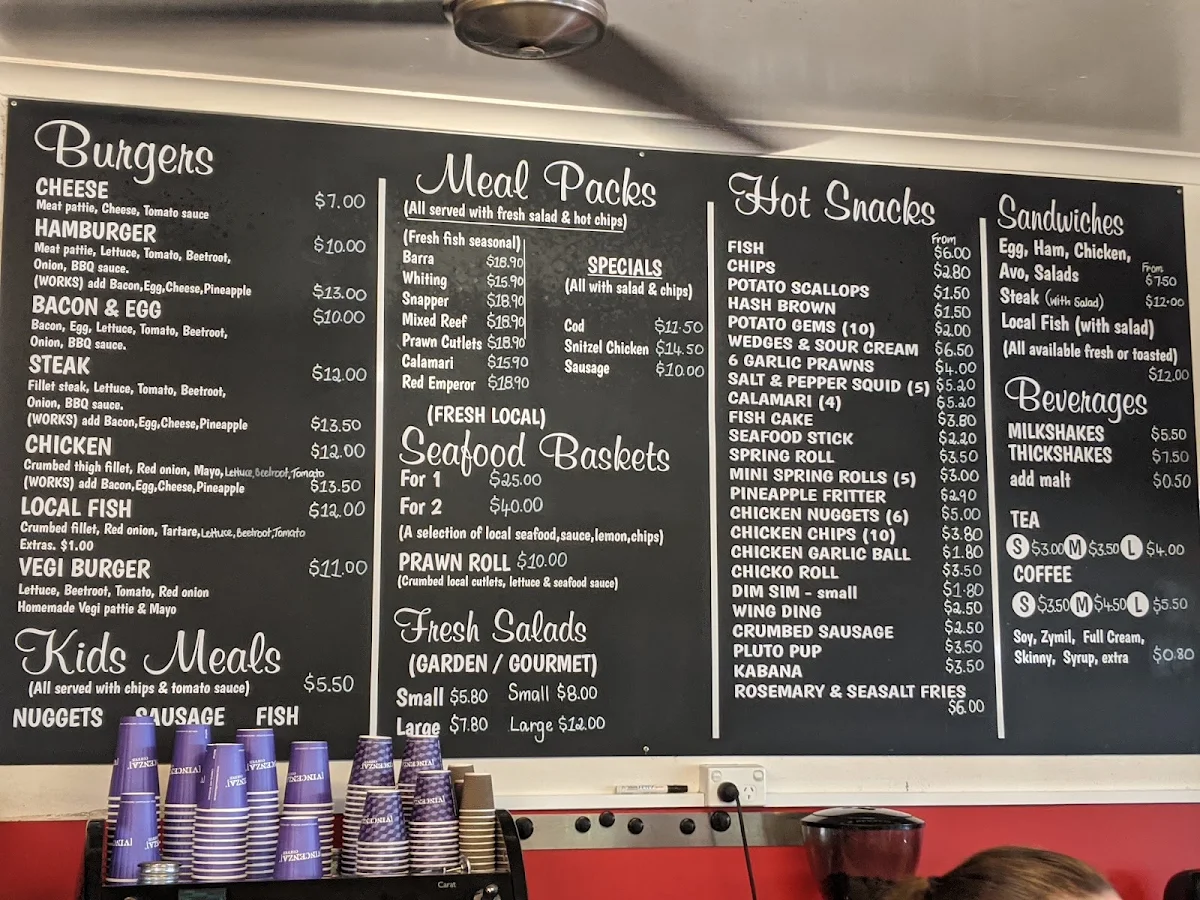 Burgers
CHEESE
Meat pattie, Cheese, Tomato sauce $7.00
HAMBURGER $10.00
Meat pattie, Lettuce, Tomato, Beetroot,
Onion, BBQ sauce.
(WORKS) add Bacon,Egg,Cheese,Pineapple $13.00
BACON & EGG $10.00
Bacon, Egg, Lettuce, Tomato, Beetroot,
Onion, BBQ sauce.
STEAK $12.00
Fillet steak, Lettuce, Tomato, Beetroot,
Onion, BBQ sauce.
(WORKS) add Bacon,Egg,Cheese,Pineapple $13.50
CHICKEN $12.00
Crumbed thigh fillet, Red onion, Mayo, Lettuce, Beetroot, Tomato
(WORKS) add Bacon,Egg,Cheese,Pineapple $13.50
LOCAL FISH $12.00
Crumbed fillet, Red onion, Tartare, Lettuce, Beetroot, Tomato
Extras. $1.00
VEGI BURGER $11.00
Lettuce, Beetroot, Tomato, Red onion
Homemade Vegi pattie & Mayo
Kids Meals
(All served with chips & tomato sauce) $5.50
NUGGETS SAUSAGE FISH
Meal Packs
(All served with fresh salad & hot chips)
(Fresh fish seasonal)
Barra $18.90
Whiting $15.90
Snapper $18.90
Mixed Reef $18.90
Prawn Cutlets $18.90
Calamari $15.90
Red Emperor $18.90
SPECIALS
(All with salad & chips)
Cod $11.50
Snitzel Chicken $14.50
Sausage $10.00
(FRESH LOCAL)
Seafood Baskets
For 1 $25.00
For 2 $40.00
(A selection of local seafood,sauce,lemon,chips)
PRAWN ROLL $10.00
(Crumbed local cutlets, lettuce & seafood sauce)
Fresh Salads
(GARDEN / GOURMET)
Small $5.80 Small $8.00
Large $7.80 Large $12.00
Hot Snacks
From
FISH $6.00
CHIPS $2.80
POTATO SCALLOPS $1.50
HASH BROWN $1.50
POTATO GEMS (10) $2.00
WEDGES & SOUR CREAM $6.50
6 GARLIC PRAWNS $4.00
SALT & PEPPER SQUID (5) $5.20
CALAMARI (4) $5.20
FISH CAKE $3.80
SEAFOOD STICK $2.20
SPRING ROLL $3.50
MINI SPRING ROLLS (5) $3.00
PINEAPPLE FRITTER $2.90
CHICKEN NUGGETS (6) $5.00
CHICKEN CHIPS (10) $3.80
CHICKEN GARLIC BALL $1.80
CHICKO ROLL $3.50
DIM SIM - small $1.80
WING DING $2.50
CRUMBED SAUSAGE $2.50
PLUTO PUP $3.50
KABANA $3.50
ROSEMARY & SEASALT FRIES
$6.00
Sandwiches
Egg, Ham, Chicken,
Avo, Salads From $7.50
Steak (with Salad) $12.00
Local Fish (with salad)
(All available fresh or toasted)
$12.00
Beverages
MILKSHAKES $5.50
THICKSHAKES $7.50
add malt $0.50
TEA
S $3.00 M $3.50 L $4.00
COFFEE
S $3.50 M $4.50 L $5.50
Soy, Zymil, Full Cream,
Skinny, Syrup, extra $0.80
VINCENZA
VINCENZA
VINCENZA
Carat